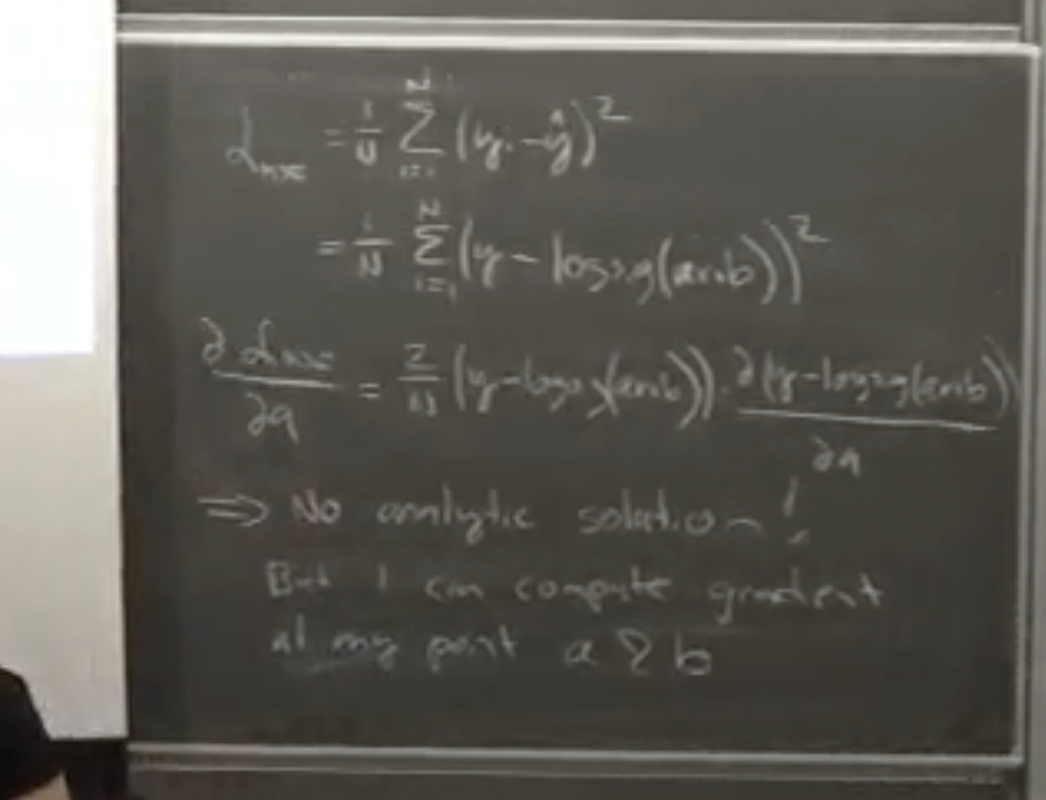 L_MSE = 1/N Σ_{i=1}^{N} (y_i - ŷ)²
= 1/N Σ_{i=1}^{N} (y - logsig(ax+b))²
∂L_MSE/∂a = 2/N (y-logsig(ax+b)) · ∂(y-logsig(ax+b))/∂a
⇒ No analytic solution!
But I can compute gradient
at any point a & b